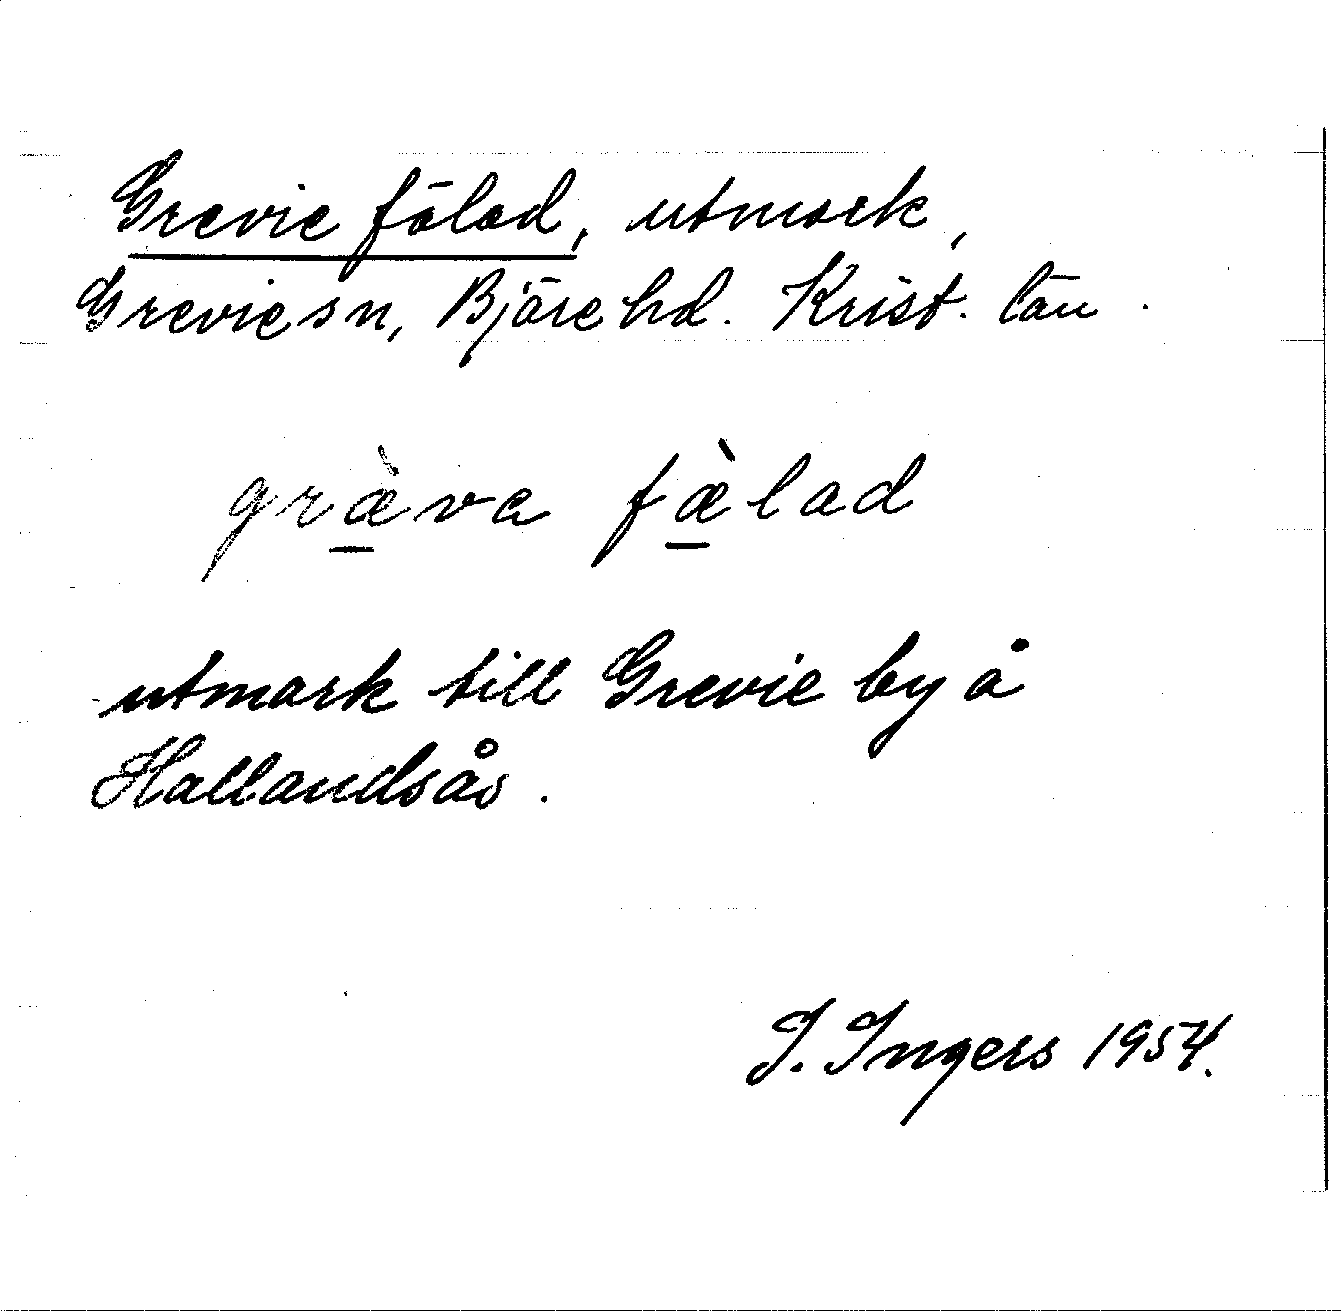 Grevie fälad, utmark,
Grevie sn, Bjäre hd. Krist. län.
græ̀va fæ̀lad
utmark till Grevie by å
Hallandsås.
I. Ingers 1954.